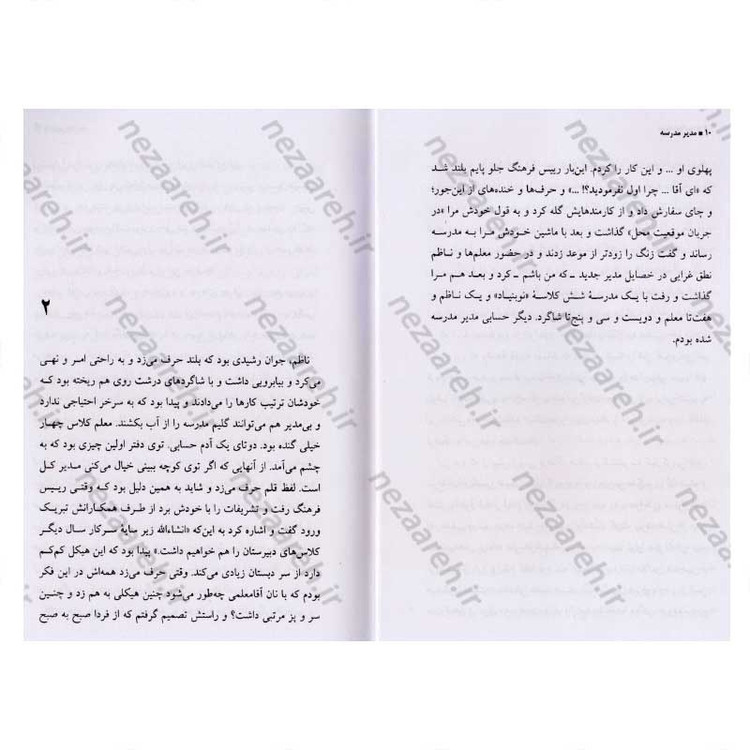 ۱۰ ■ مدیر مدرسه
پهلوی او ... و این کار را کردم. این‌بار رییس فرهنگ جلو پایم بلند شد
که «ای آقا ... چرا اول نفرمودید؟! ...» و حرف‌ها و خنده‌های از این‌جور؛
و چای سفارش داد و از کارمندهایش گله کرد و به قول خودش مرا «در
جریان موقعیت محل» گذاشت و بعد با ماشین خودش مرا به مدرسه
رساند و گفت زنگ را زودتر از موعد زدند و در حضور معلم‌ها و ناظم
نطق غرایی در خصایل مدیر جدید ـ که من باشم ـ کرد و بعد هم مرا
گذاشت و رفت با یک مدرسهٔ شش کلاسهٔ «نوبنیاد» و یک ناظم و
هفت‌تا معلم و دویست و سی و پنج‌تا شاگرد. دیگر حسابی مدیر مدرسه
شده بودم.
۲
ناظم، جوان رشیدی بود که بلند حرف می‌زد و به راحتی امر و نهی
می‌کرد و بیابرویی داشت و با شاگردهای درشت روی هم ریخته بود که
خودشان ترتیب کارها را می‌دادند و پیدا بود که به سرخر احتیاجی ندارد
و بی‌مدیر هم می‌توانند گلیم مدرسه را از آب بکشند. معلم کلاس چهار
خیلی گنده بود. دوتای یک آدم حسابی. توی دفتر اولین چیزی بود که به
چشم می‌آمد. از آنهایی که اگر توی کوچه ببینی خیال می‌کنی مدیر کل
است. لفظ قلم حرف می‌زد و شاید به همین دلیل بود که وقتی رییس
فرهنگ رفت و تشریفات را با خودش برد از طرف همکارانش تبریک
ورود گفت و اشاره کرد به این‌که «انشاءالله زیر سایهٔ سرکار سال دیگر
کلاس‌های دبیرستان را هم خواهیم داشت.» پیدا بود که این هیکل کم‌کم
دارد از سر دبستان زیادی می‌کند. وقتی حرف می‌زد همه‌اش در این فکر
بودم که با نان آقامعلمی چه‌طور می‌شود چنین هیکلی به هم زد و چنین
سر و پز مرتبی داشت؟ و راستش تصمیم گرفتم که از فردا صبح به صبح
nezaareh.ir
nezaareh.ir
nezaareh.ir
nezaareh.ir
nezaareh.ir
nezaareh.ir
nezaareh.ir
nezaareh.ir
nezaareh.ir
nezaareh.ir
nezaareh.ir